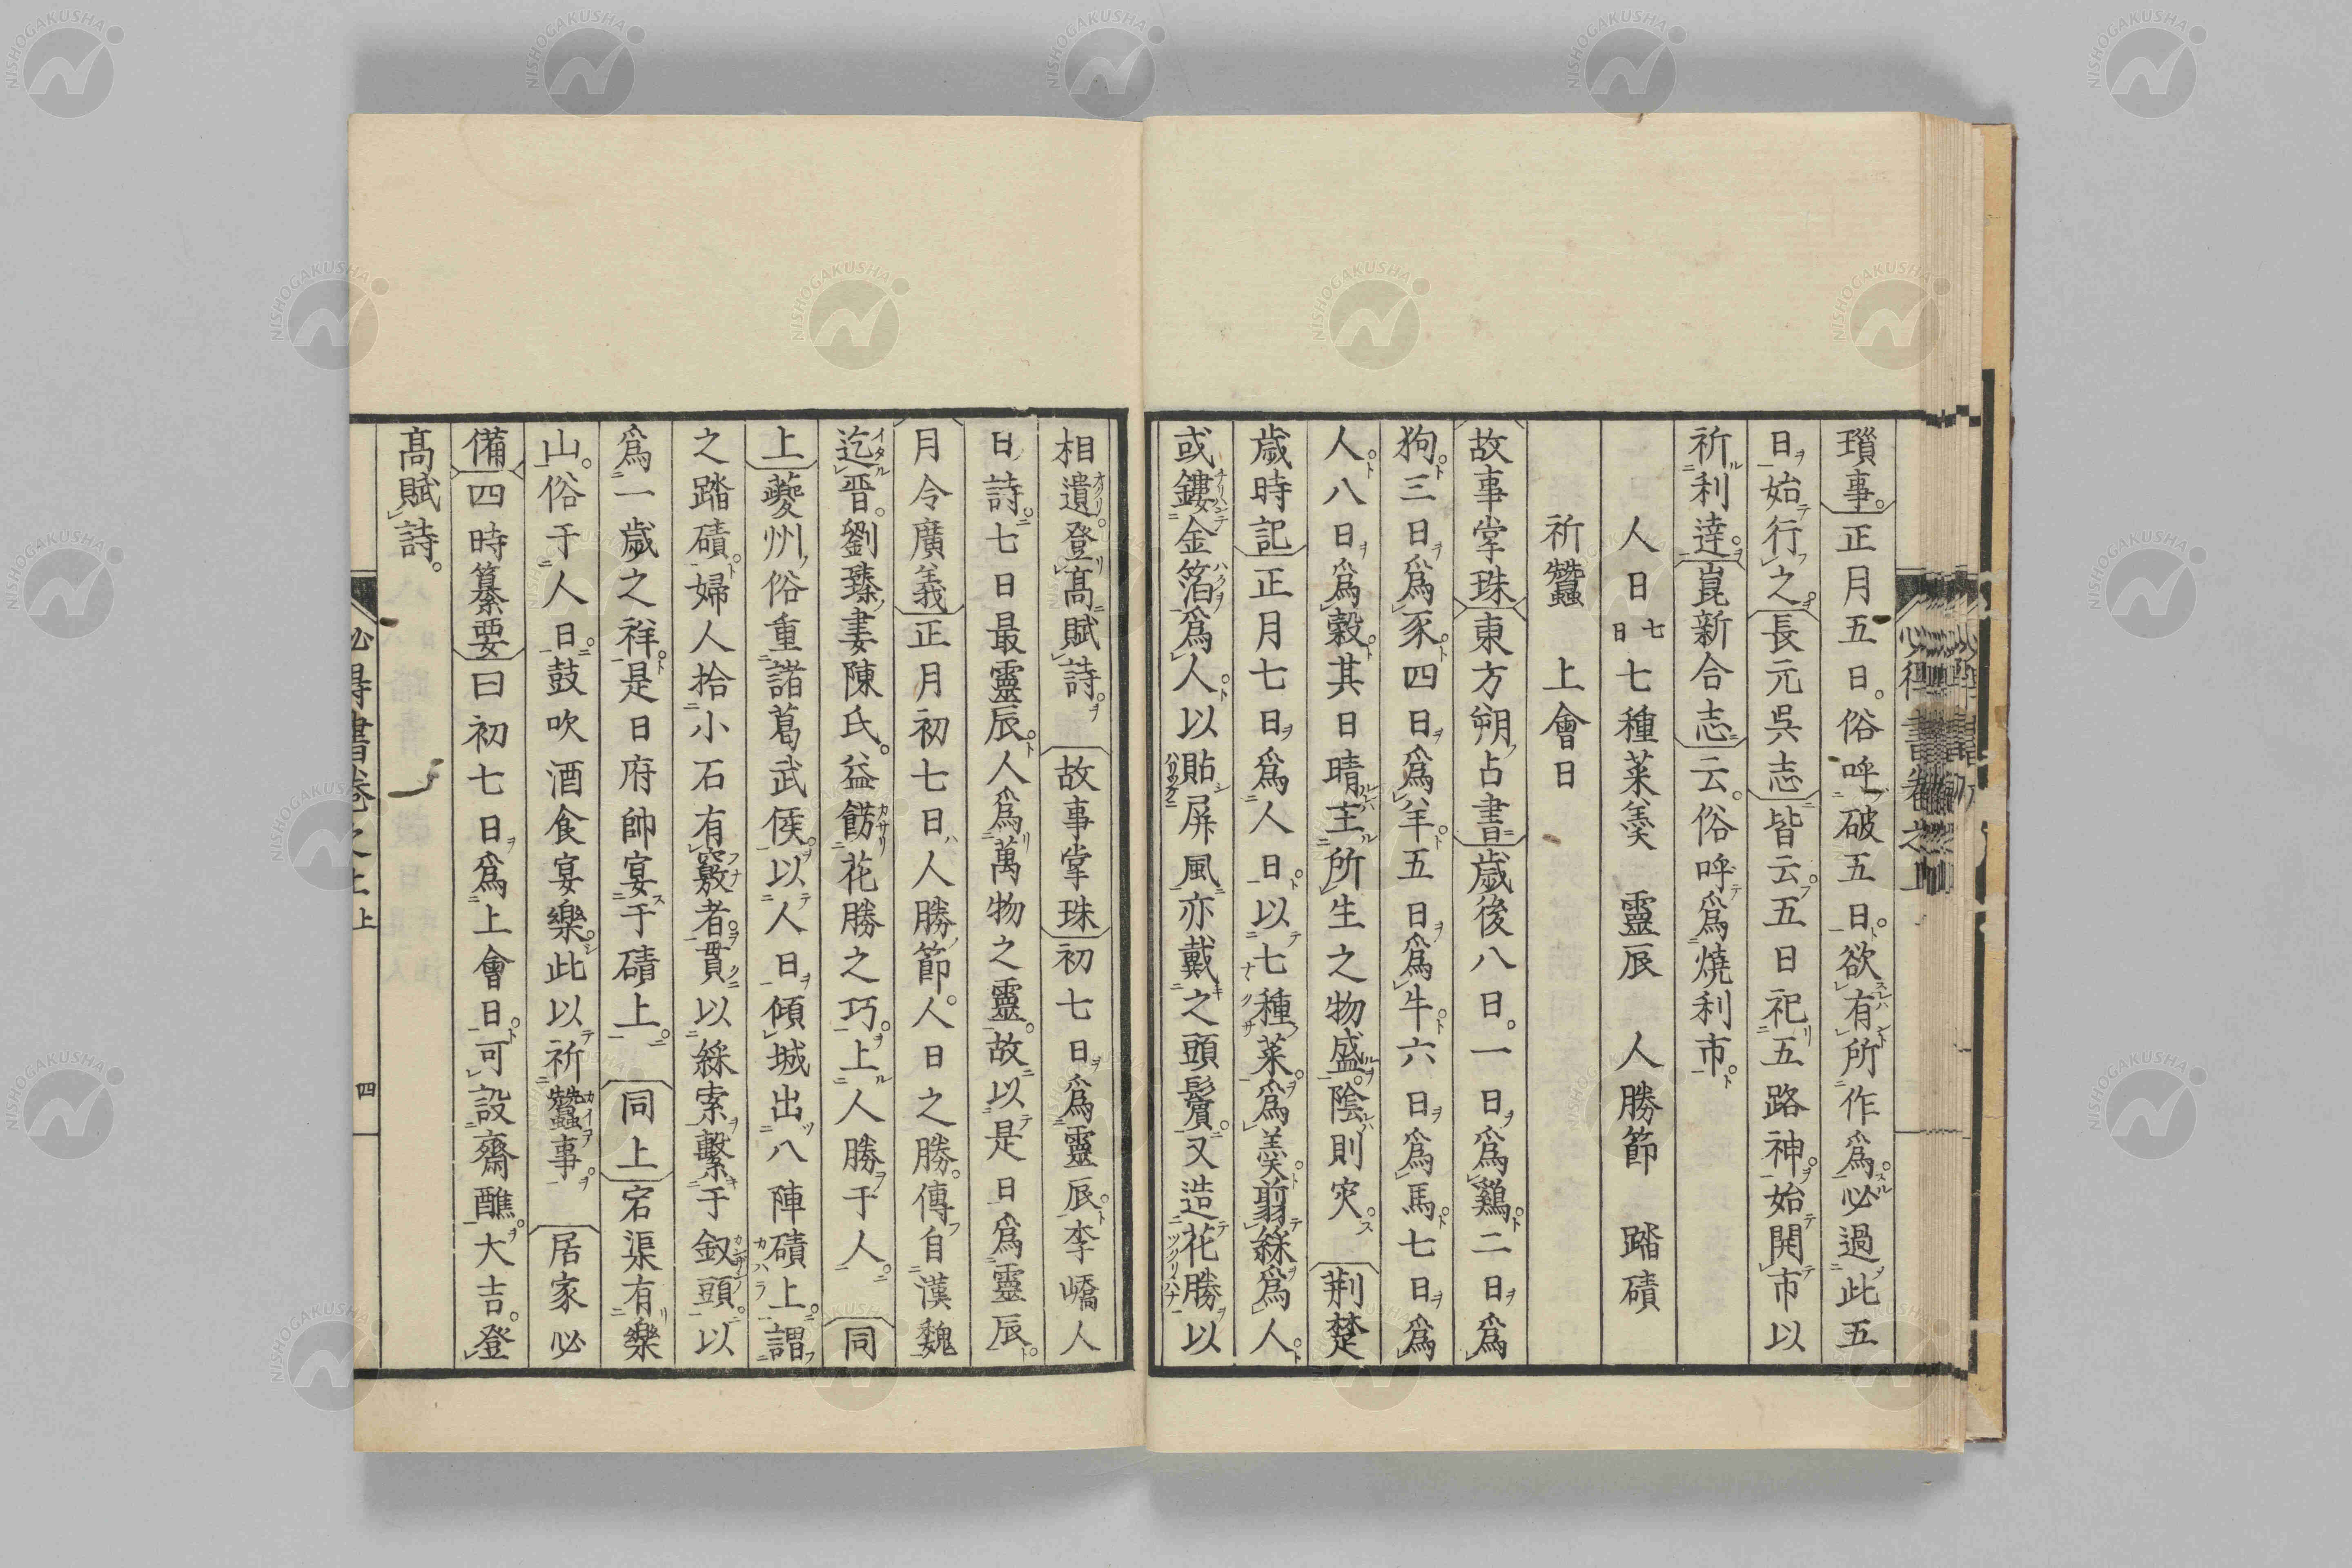 瑣事正月五日俗呼破五日欲有所作爲必過此五
日始行之長元呉志皆云五日祀五路神始開市以
祈利達崑新合志云俗呼爲燒利市
人日七日七種菜羹 靈辰 人勝節 踏磧
祈蠶 上會日
故事掌珠東方朔占書歳後八日一日爲鷄二日爲
狗三日爲豕四日爲羊五日爲牛六日爲馬七日爲
人八日爲穀其日晴主所生之物盛陰則灾 荆楚
歳時記正月七日爲人日以七種菜爲羹翦綵爲人
或鏤金箔爲人以貼屏風亦戴之頭鬢又造花勝以
相遺登髙賦詩 故事掌珠初七日爲靈辰李嶠人
日詩七日最靈辰人爲萬物之靈故以是日爲靈辰
月令廣義正月初七日人勝節人日之勝傳自漢魏
迄晋劉臻妻陳氏益餝花勝之巧上人勝于人 同
上夔州俗重諸葛武侯以人日傾城出八陣磧上謂
之踏磧婦人拾小石有竅者貫以綵索繋于釵頭以
爲一歳之祥是日府帥宴于磧上 同上宕渠有樂
山俗于人日鼓吹酒食宴樂此以祈蠶事 居家必
備四時纂要曰初七日爲上會日可設齋醮大吉登
髙賦詩
必得書卷之上 上 四
NISHOGAKUSHA